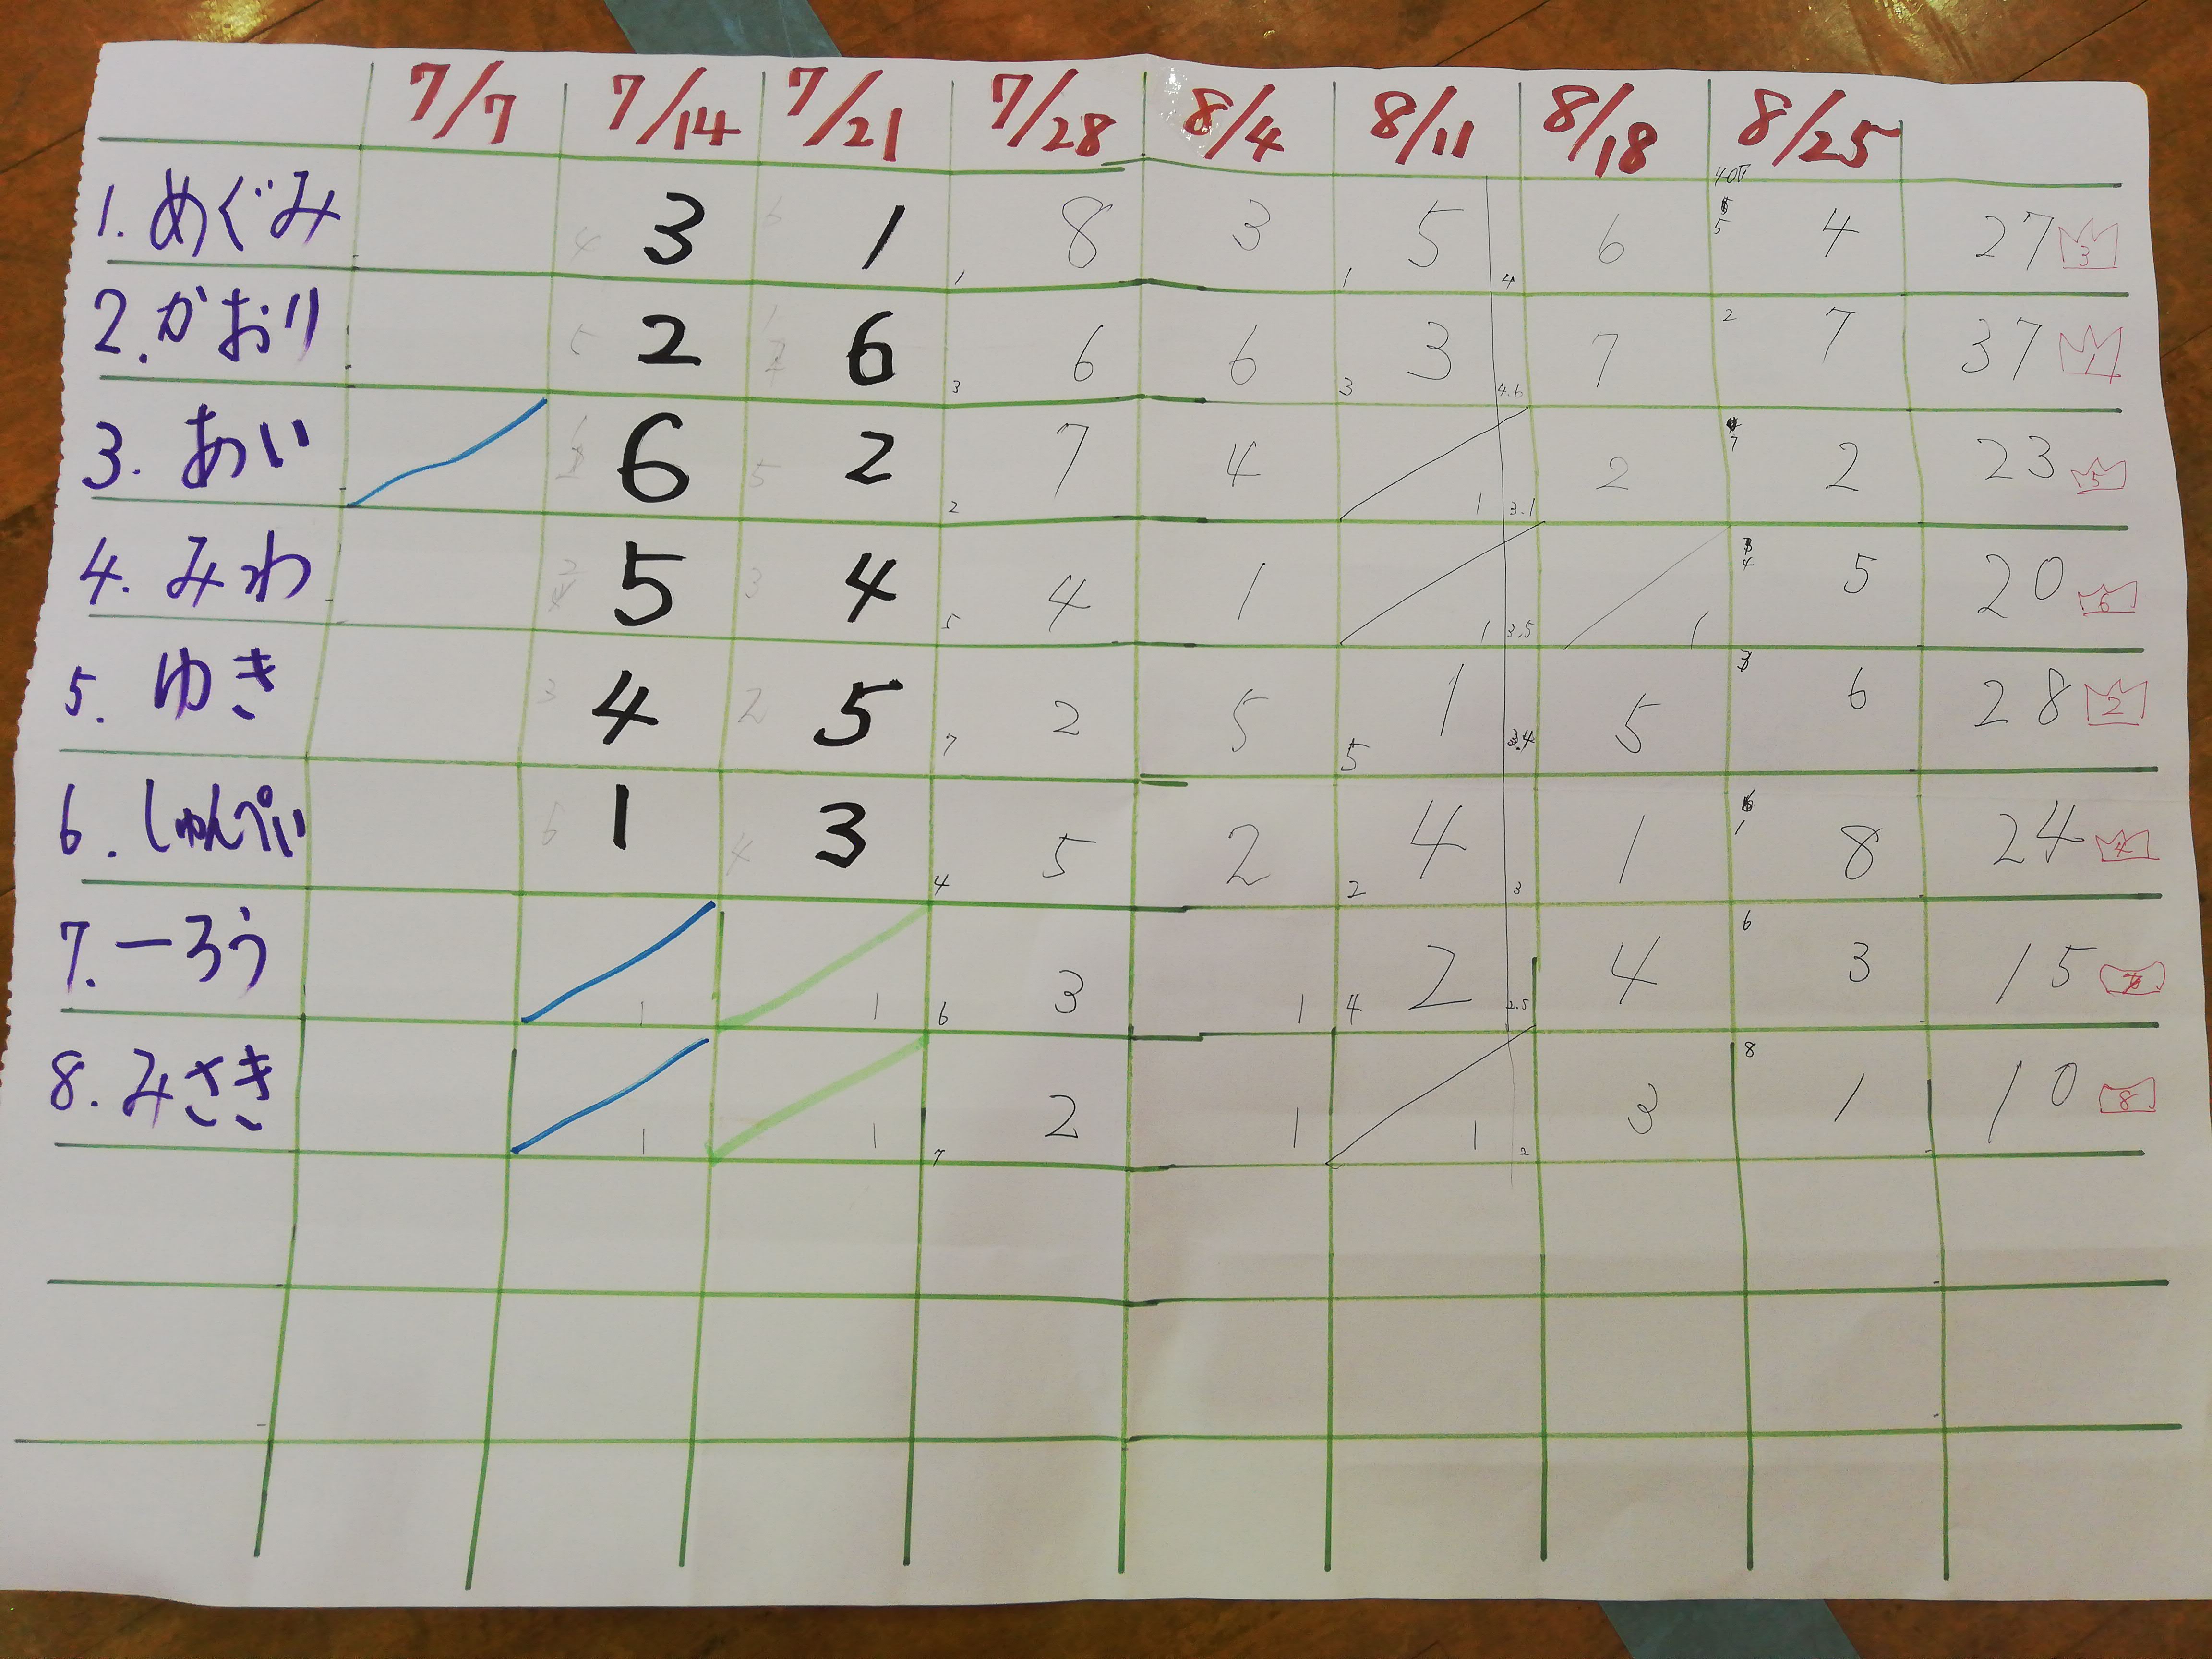 7/7 7/14 7/21 7/28 8/4 8/11 8/18 8/25
1. めぐみ 4 3 6 1 1 8 3 1 5 4 6 5 4 27 3
2. かおり 5 2 1 6 3 6 6 3 3 4.6 7 2 7 37 1
3. あい 6 5 2 2 7 4 1 3.1 2 7 2 23 5
4. みわ 2 5 3 4 5 4 1 1 3.5 1 4 5 20 6
5. ゆき 3 4 2 5 7 2 5 5 1 3.4 5 3 6 28 2
6. しゅんぺい 6 1 4 3 4 5 2 2 4 3 1 1 8 24 4
7. 一ろう 1 1 6 3 1 4 2 2.5 4 6 3 15 7
8. みさき 1 1 7 2 1 1 2 3 8 1 10 8